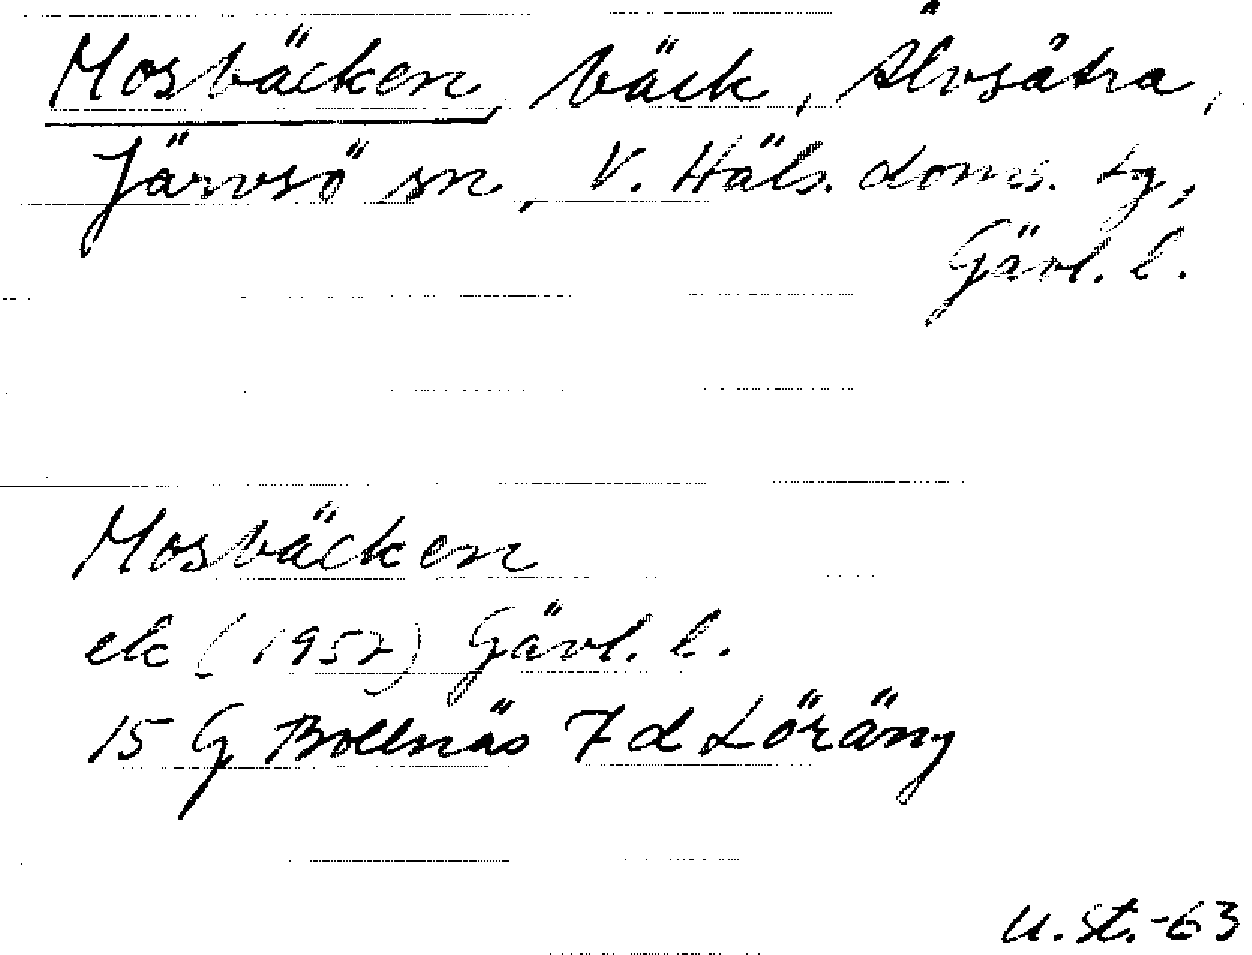 Mosbäcken, bäck, Älvsätra,
Järvsö sn, V. Häls. doms. tg,
Gävl. l.
Mosbäcken
ek (1957) Gävl. l.
15 G Bollnäs 7 d Löräng
U.St.-63